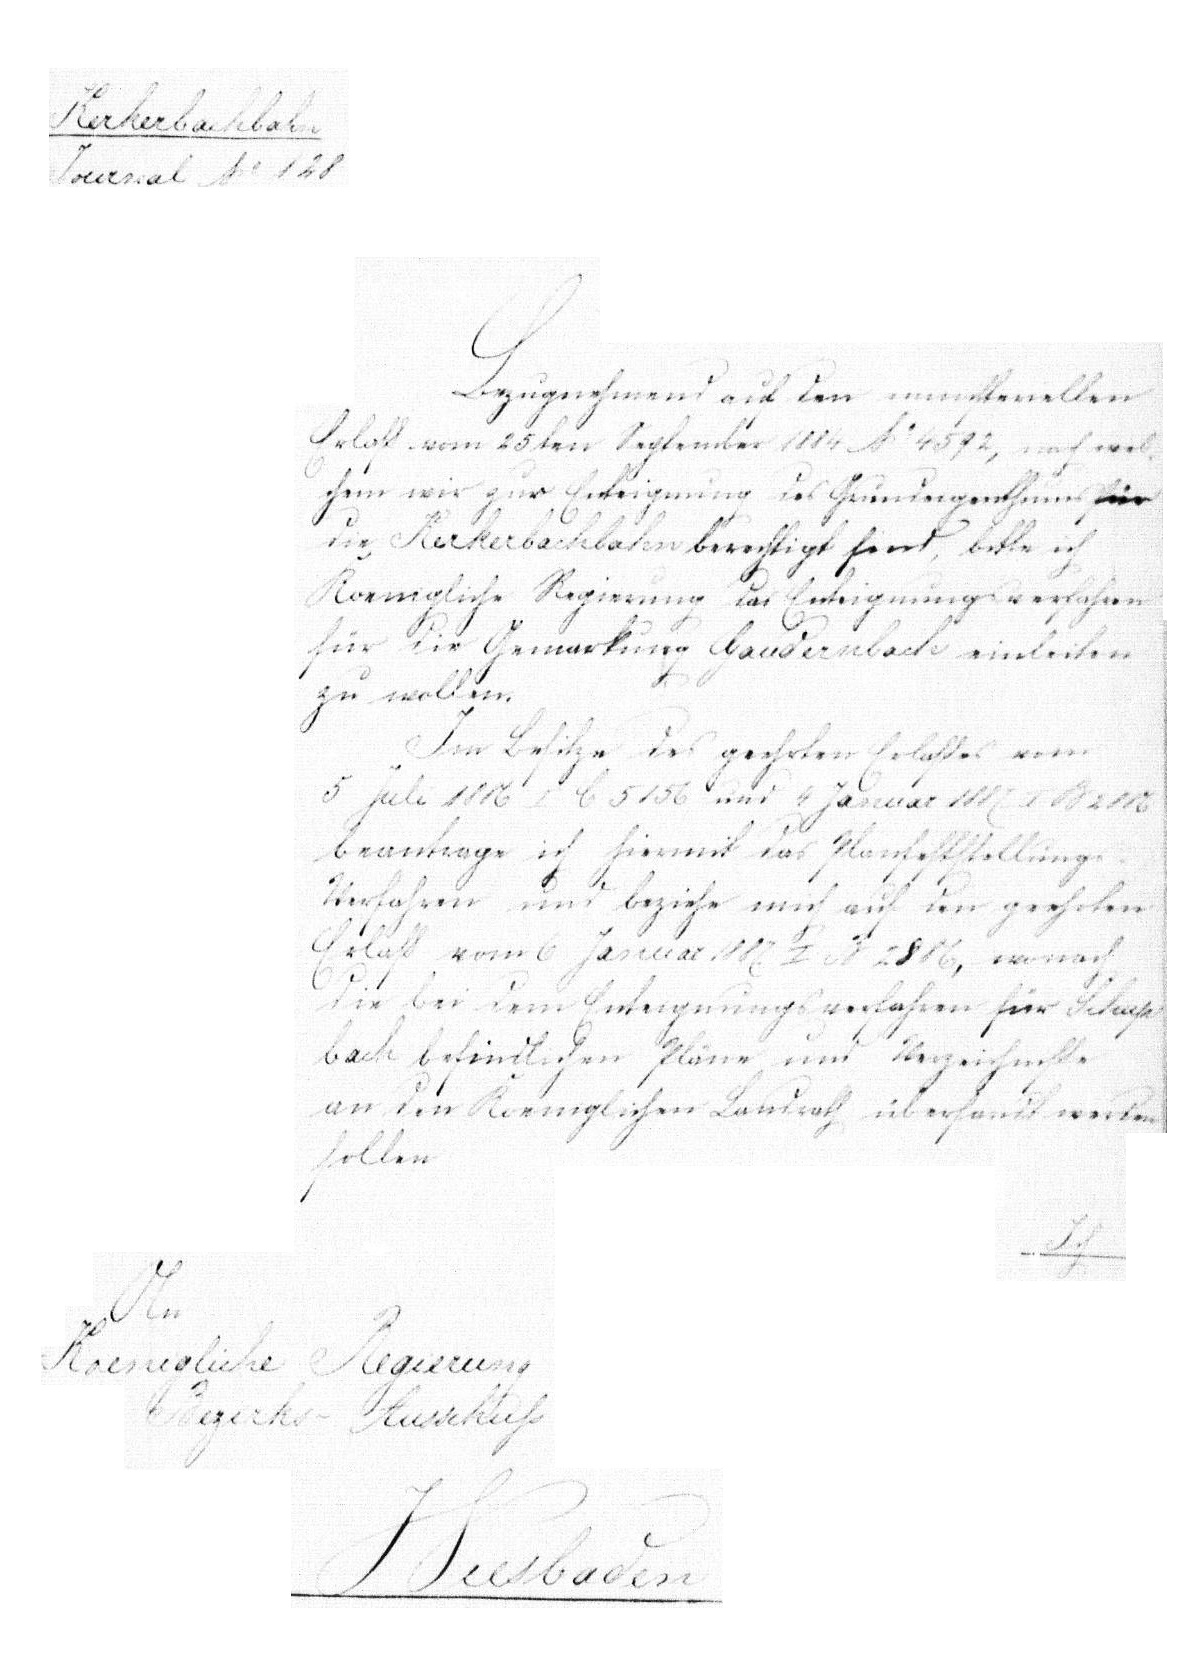 Kerkerbachbahn
Journal № 128
Bezugnehmend auf den ministeriellen
Erlaß vom 25ten September 1884 № 4592, nach wel-
chem wir zur Enteignung des Grundeigenthums für
die Kerkerbachbahn berechtigt sind, bitte ich
Koenigliche Regierung das Enteignungsverfahren
für die Gemarkung Gaudernbach einleiten
zu wollen.
Im Besitze des geehrten Erlaßes vom
5 Juli 1886 I C 5156 und Januar 1887 I B 2886
beantrage ich hiermit das Planfeststellungs-
Verfahren und beziehe mich auf den geehrten
Erlaß vom 6 Januar 1887 I B 2886, wonach
die bei dem Enteignungsverfahren für Schupp
bach befindlichen Pläne und Verzeichniße
an den Koeniglichen Landrath übersandt werden
sollen
An
Koenigliche Regierung
Bezirks-Ausschuß
Wiesbaden